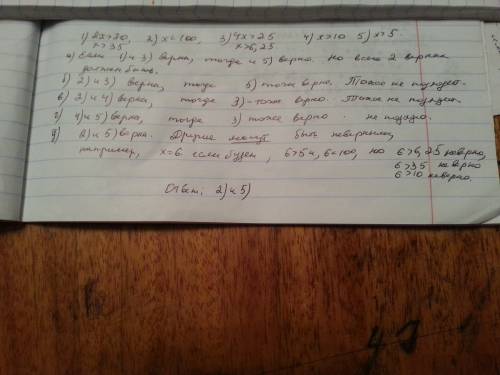 1) 2x>70, 2) x<100, 3) 4x>25 4) x>10 5) x>5.
x>35 x>6,25
а) Если 1) и 3) верны, тогда и 5) верно. Но всего 2 верных
должно быть.
б) 2) и 3) верны, тогда 5) тоже верно. Тоже не подходит.
в) 2) и 4) верны, тогда 3) - тоже верно. Тоже не подходит.
г) 4) и 5) верны, тогда 3) тоже верно. не подходит.
д) 2) и 5) верны. Другие могут быть неверными,
например, x=6 если будет, 6>5 и, 6<100, но 6>6,25 неверно,
6>35 неверно
6>10 неверно.
Ответ: 2) и 5)